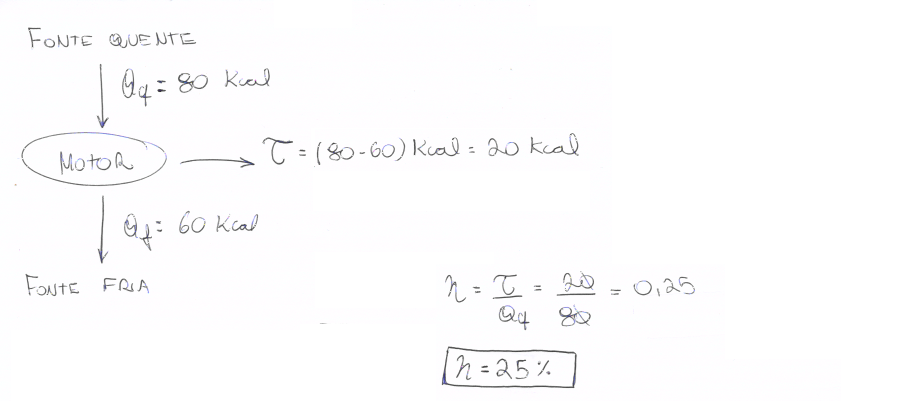 FONTE QUENTE
Qq = 80 Kcal
MOTOR
τ = (80-60) Kcal = 20 Kcal
Qf = 60 Kcal
FONTE FRIA
η = τ/Qq = 20/80 = 0,25
η = 25%